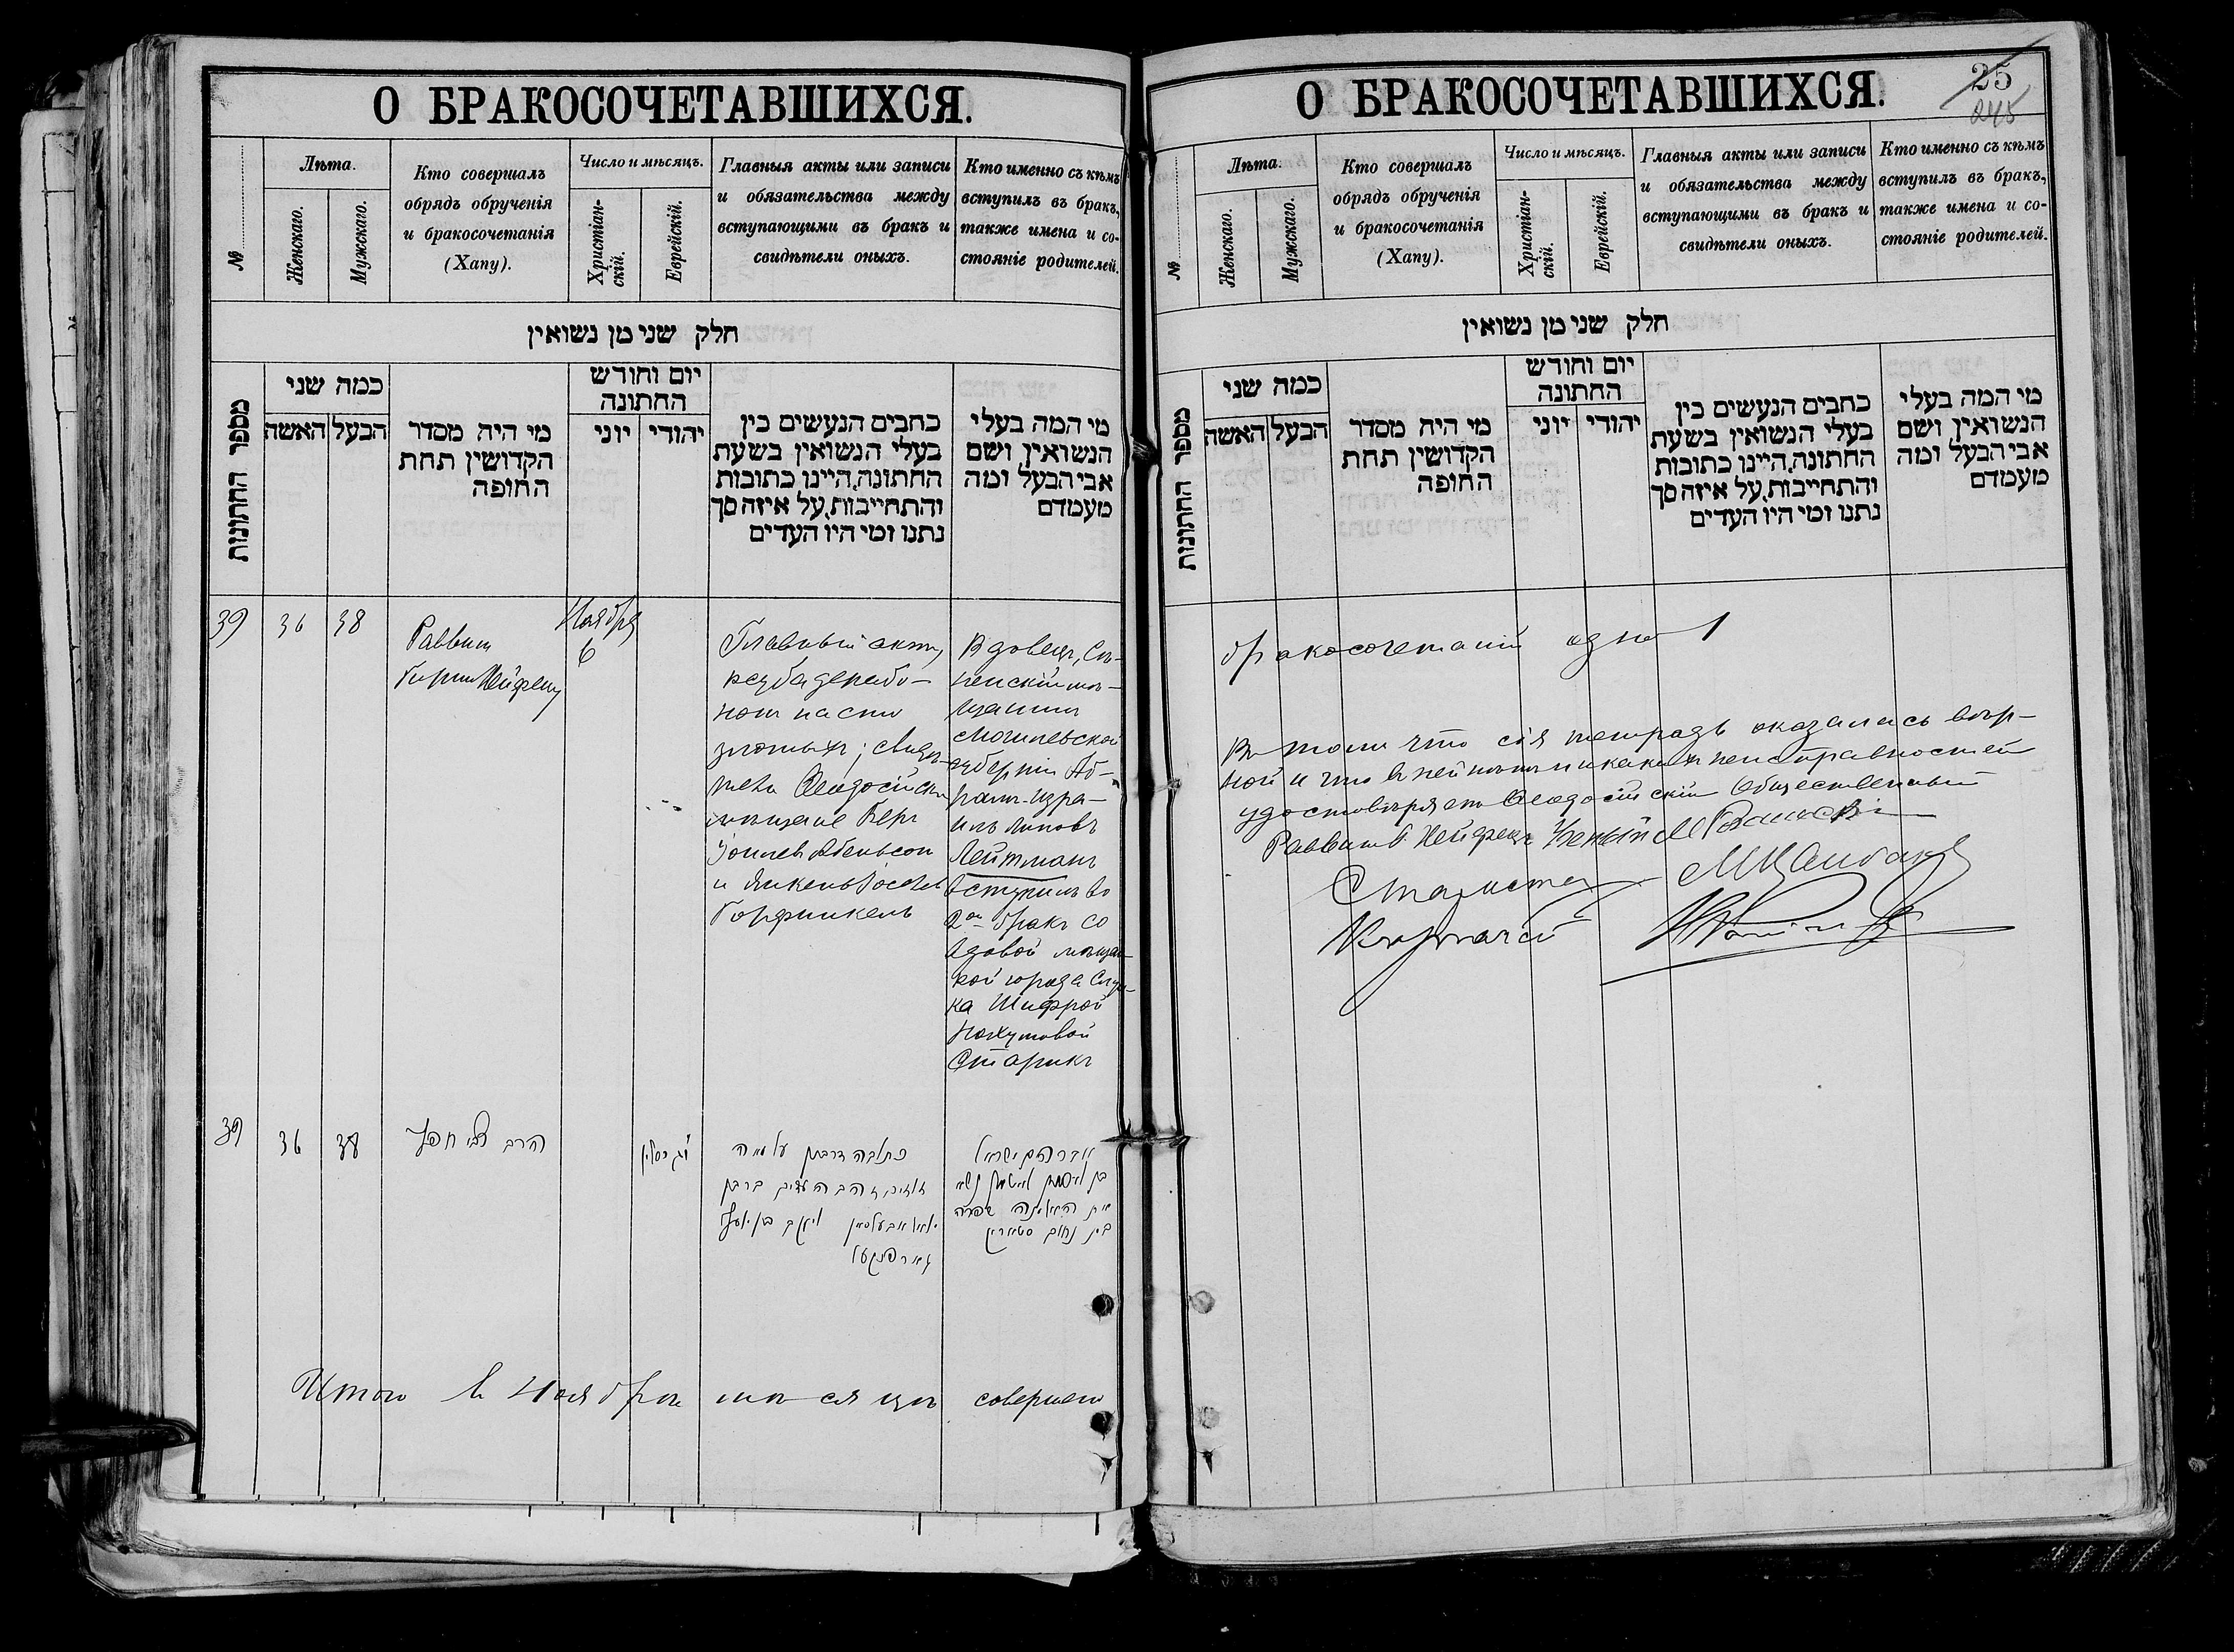 О БРАКОСОЧЕТАВШИХСЯ.
№
Лѣта.
Женскаго.
Мужскаго.
Кто совершалъ
обрядъ обрученія
и бракосочетанія
(Хапу).
Число и мѣсяцъ.
Христіан-
скій.
Еврейскій.
Главныя акты или записи
и обязательства между
вступающими въ бракъ и
свидѣтели оныхъ.
Кто именно съ кѣмъ
вступилъ въ бракъ,
также имена и со-
стояніе родителей.
חלק שני מן נשואין
מספר החתונות
כמה שני
האשה
הבעל
מי היה מסדר
הקדושין תחת
החופה
יום וחודש
החתונה
יוני
יהודי
כתבים הנעשים בין
בעלי הנשואין בשעת
החתונה, היינו כתובות
והתחייבות, על איזה סך
נתנו ומי היו העדים
מי המה בעלי
הנשואין ושם
אבי הבעל ומה
מעמדם
39
36
38
Раввинъ
Гирш Хейфецъ
Ноября
6
Главный актъ,
кетуба
на сто
злотыхъ; свидѣ-
тели Ѳеодосійскіе
мѣщане Беръ
Абельсон
и
Горфинкель
Вдовецъ, Сѣн-
ненскій мѣ-
щанинъ
Могилевской
губерніи Аб-
рамъ-Изра-
иль
Лейтманъ
вступилъ во
2ой бракъ со
вдовой мѣщан-
кой города Слуц-
ка Шифрой
Нохумовой
Старикъ
39
36
38
הרב צבי חפץ
כתובה
העדים
אברהם ישראל
בן
שפרה
בת נחום סטאריק
Итого въ Ноябрѣ мѣсяцѣ совершено
О БРАКОСОЧЕТАВШИХСЯ.
25
245
№
Лѣта.
Женскаго.
Мужскаго.
Кто совершалъ
обрядъ обрученія
и бракосочетанія
(Хапу).
Число и мѣсяцъ.
Христіан-
скій.
Еврейскій.
Главныя акты или записи
и обязательства между
вступающими въ бракъ и
свидѣтели оныхъ.
Кто именно съ кѣмъ
вступилъ въ бракъ,
также имена и со-
стояніе родителей.
חלק שני מן נשואין
מספר החתונות
כמה שני
האשה
הבעל
מי היה מסדר
הקדושין תחת
החופה
יום וחודש
החתונה
יוני
יהודי
כתבים הנעשים בין
בעלי הנשואין בשעת
החתונה, היינו כתובות
והתחייבות, על איזה סך
נתנו ומי היו העדים
מי המה בעלי
הנשואין ושם
אבי הבעל ומה
מעמדם
бракосочетаній одно 1
Въ томъ что сія тетрадь оказалась вѣр-
ной и что въ ней нѣтъ никакихъ неисправностей
удостовѣряетъ Ѳеодосійскій Общественный
Раввинъ Г. Хейфецъ Ученый
Староста
Казначей